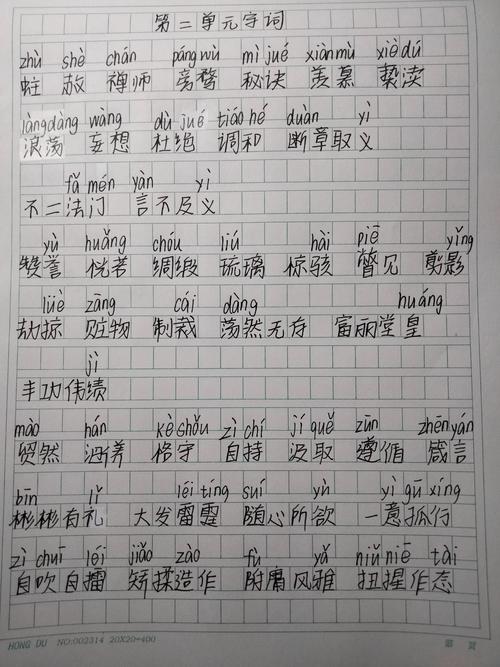 第二单元字词
zhù shè chán páng wù mì jué xiàn mù xiè dú
蛀 赦 禅师 旁骛 秘诀 羡慕 亵渎
làng dàng wàng dù jué tiáo hé duàn yì
浪荡 妄想 杜绝 调和 断章取义
fǎ mén yàn yì
不二法门 言不及义
yù huǎng chóu liú hài piē yǐng
赞誉 恍若 绸缎 琉璃 惊骇 瞥见 剪影
lüè zāng cái dàng huáng
劫掠 赃物 制裁 荡然无存 富丽堂皇
jì
丰功伟绩
mào hán kè shǒu zì chí jí quě zūn zhēn yán
贸然 涵养 恪守 自持 汲取 遵循 箴言
bīn lǐ léi tíng suí yù yì gū xíng
彬彬有礼 大发雷霆 随心所欲 一意孤行
zì chuī léi jiǎo zào fù yǎ niǔ niē tài
自吹自擂 矫揉造作 附庸风雅 扭捏作态
HONG DU NO:002314 20X20=400